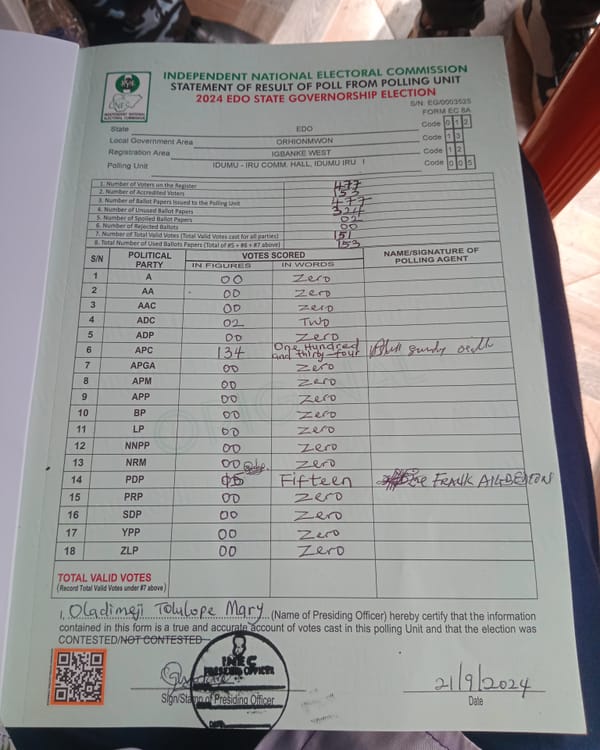 INDEPENDENT NATIONAL ELECTORAL COMMISSION
STATEMENT OF RESULT OF POLL FROM POLLING UNIT
2024 EDO STATE GOVERNORSHIP ELECTION
S/N: EG/0003525
FORM EC 8A
State EDO Code 0 1 2
Local Government Area ORHIONMWON Code 1 3
Registration Area IGBANKE WEST Code 1 2
Polling Unit IDUMU - IRU COMM. HALL, IDUMU IRU I Code 0 0 5
1. Number of Voters on the Register 477
2. Number of Accredited Voters 153
3. Number of Ballot Papers Issued to the Polling Unit 477
4. Number of Unused Ballot Papers 324
5. Number of Spoiled Ballot Papers 02
6. Number of Rejected Ballots 00
7. Number of Total Valid Votes (Total Valid Votes cast for all parties) 151
8. Total Number of Used Ballots Papers (Total of #5 + #6 + #7 above) 153
S/N POLITICAL PARTY VOTES SCORED NAME/SIGNATURE OF POLLING AGENT
IN FIGURES IN WORDS
1 A 00 Zero
2 AA 00 Zero
3 AAC 00 Zero
4 ADC 02 Two
5 ADP 00 Zero
6 APC 134 One Hundred and thirty four
7 APGA 00 Zero
8 APM 00 Zero
9 APP 00 Zero
10 BP 00 Zero
11 LP 00 Zero
12 NNPP 00 Zero
13 NRM 00 Zero
14 PDP 15 Fifteen FRANK
15 PRP 00 Zero
16 SDP 00 Zero
17 YPP 00 Zero
18 ZLP 00 Zero
TOTAL VALID VOTES
(Record Total Valid Votes under #7 above)
I, Oladimeji Tolulope Mary (Name of Presiding Officer) hereby certify that the information
contained in this form is a true and accurate account of votes cast in this polling Unit and that the election was
CONTESTED/NOT CONTESTED
INEC
PRESIDING OFFICER
21/9/2024
Sign/Stamp of Presiding Officer Date
DATE